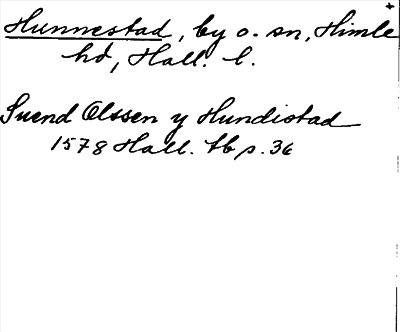 Hunnestad, by o. sn, Himle
hd, Hall. l.
Suend Olssen y Hundistad
1578 Hall. tb p. 36